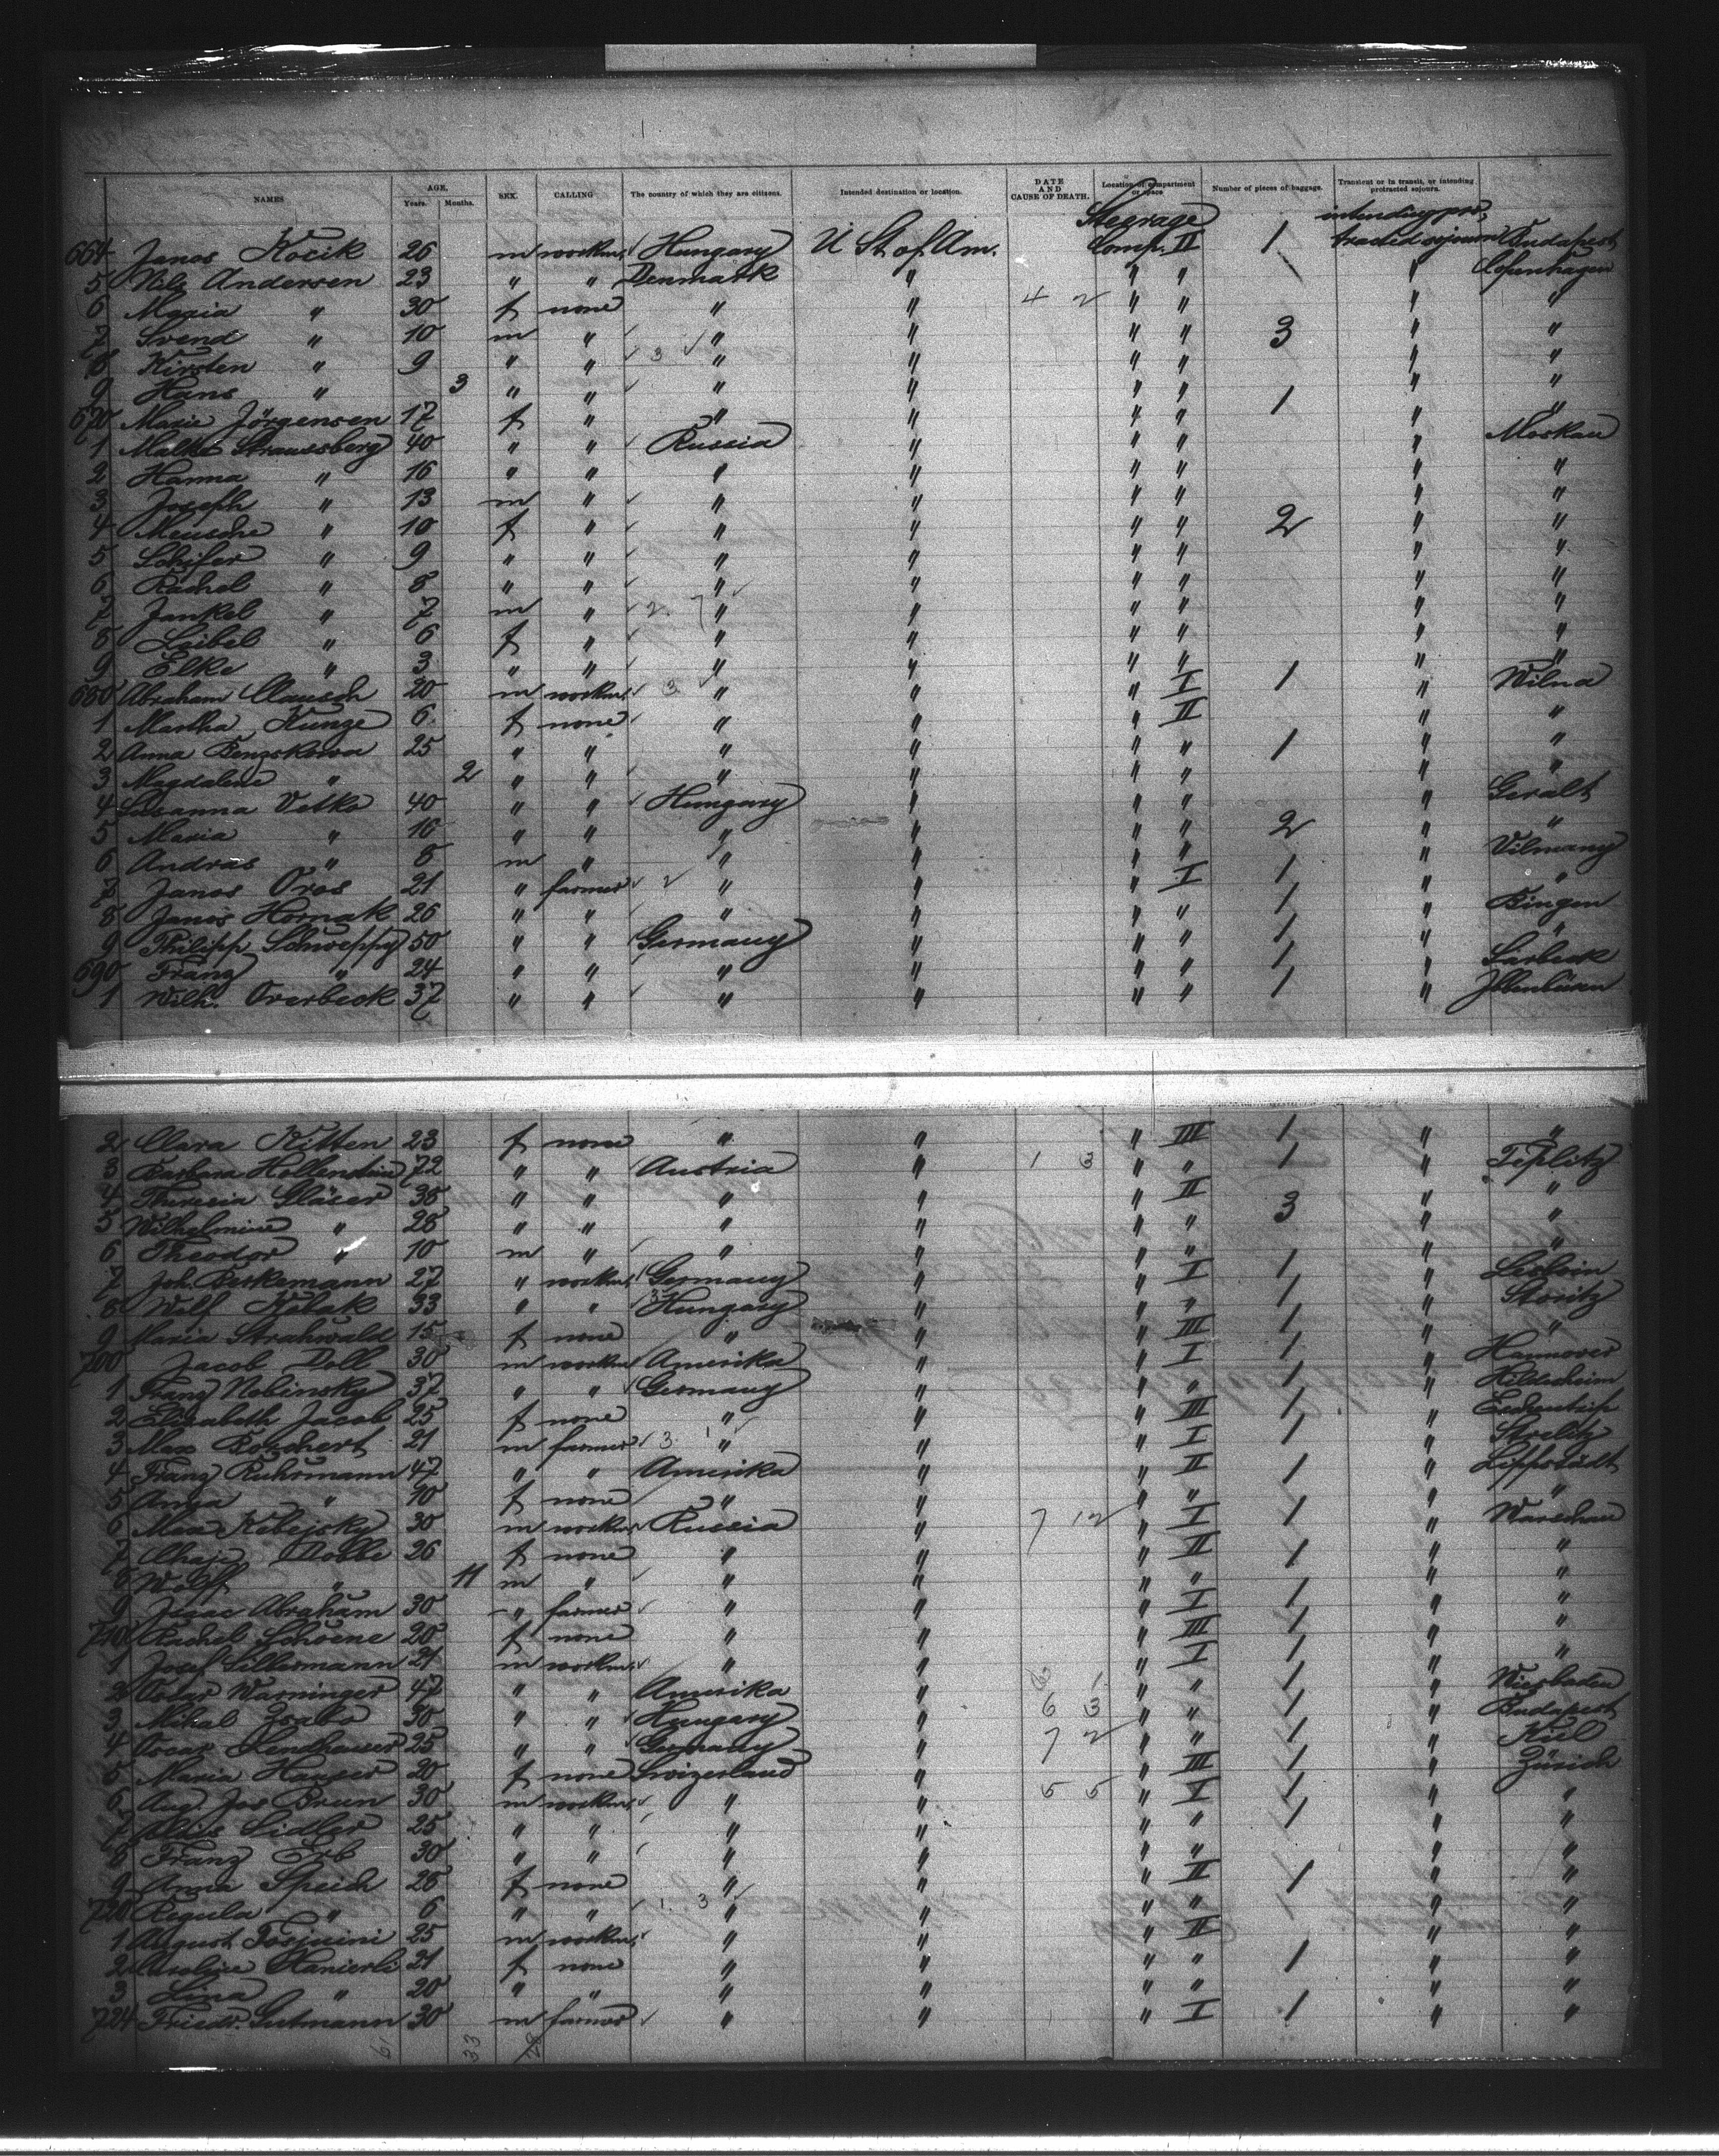 NAMES AGE, Years. Months. SEX. CALLING The country of which they are citizens. Intended destination or location. DATE AND CAUSE OF DEATH. Location of compartment or space Number of pieces of baggage. Transient or in transit, or intending protracted sojourn.
664 Janos Kocik 26 m workm. Hungary U St. of Am. Steerage Comp. II 1 intending protracted sojourn Budapest
5 Nils Andersen 23 " " Denmark " " " \ " Copenhagen
6 Maria " 30 f none " " 4 2 " " " "
7 Svend " 10 m " " " " " 3 " "
8 Kirsten " 9 " " 3 " " " " " "
9 Hans " 3 " " " " " " " "
670 Marie Jörgensen 17 f " " " " " 1 " "
1 Malke Straussberg 40 " " Russia " " " " Moskau
2 Hanna " 16 " " " " " " " "
3 Joseph " 13 m " " " " " " "
4 Meusche " 10 f " " " " " 2 " "
5 Schifer " 9 " " " " " " " "
6 Rachel " 8 " " " " " " " "
7 Jankel " 7 m " 2 7 " " " " " "
8 Leibel " 6 f " " " " " " "
9 Elke " 3 " " " " " " " "
680 Abraham Clausch 20 m workm. 3 " " " I 1 " Wilna
1 Martha Kunze 6 f none " " " II " "
2 Anna Benzskowa 25 " " " " " " 1 " "
3 Magdalene " 2 " " " " " " " "
4 Susanna Vetko 40 " " Hungary " " " " Geralt
5 Maria " 16 " " " " " " 2 " "
6 Andras " 8 m " " " " " " Vilmany
7 Janos Oros 21 " farmer 2 " " " I 1 " "
8 Janos Hornak 26 " " " " " " 1 " Bingen
9 Philipp Schweppy 50 " " Germany " " " 1 " "
690 Franz " 24 " " " " " " 1 " Larbeck
1 Wilh. Overbeck 37 " " " " " " 1 " Ibbenbüren
2 Clara Kitten 23 f none " " " III 1 " "
3 Barbara 72 " " Austria " 1 3 " " 1 " Teplitz
4 Theresia Gläser 38 " " " " " II 3 " "
5 Wilhelmine " 28 " " " " " " " "
6 Theodor " 10 m " " " " " " "
7 Joh. Beckemann 27 " workm. Germany " " I 1 "
8 Kolak 33 " " Hungary " " " 1 "
9 Maria Strahwald 15 f none " " " III 1 " "
700 Jacob Doll 30 m workm. Amerika " " I 1 " Hannover
1 Franz Nobinsky 37 " " Germany " " " 1 " Hildesheim
2 Elisabeth Jacob 25 f none " " " III 1 "
3 Max Borchert 21 m farmer 3 1 " " " I 1 " Strelitz
4 Franz Ruhrmann 47 " " Amerika " " II 1 " Lippstadt
5 Anna " 10 f none " " " " " "
6 Max Kobejsky 30 m workm. Russia " 7 12 " I 1 " Warschau
7 Chaje Dobbe 26 f none " " " II 1 " "
8 Wolff " 11 m " " " " " " "
9 Isaac Abraham 30 " farmer " " " I 1 " "
710 Rachel Schoene 20 f none " " " III 1 " "
1 Josef Silbermann 21 m workm. " " " I 1 " "
2 Oscar Warninger 47 " " Amerika " " " 1 " Wiesbaden
3 Mihal 30 " " Hungary " 6 3 " " 1 " Budapest
4 Oscar Lendhauser 25 " " Germany " 7 2 " " 1 " Kiel
5 Maria Hauser 20 f none Swizerland " " III 1 " Zürich
6 Aug. Jos Brun 30 m workm. " " 5 5 " I 1 " "
7 Alois Sidler 25 " " " " " " 1 " "
8 Franz Erb 30 " " " " " " " "
9 Anna Speich 28 f none " " " II 1 " "
720 Regula " 6 " " 1 3 " " " " " "
1 August 25 m workm. " " " II " "
2 Caroline Hanierli 21 f none " " " " 1 " "
3 Lina " 20 " " " " " " " "
724 Friedr. Gutmann 30 m farmer " " " I 1 " "
61 33 28